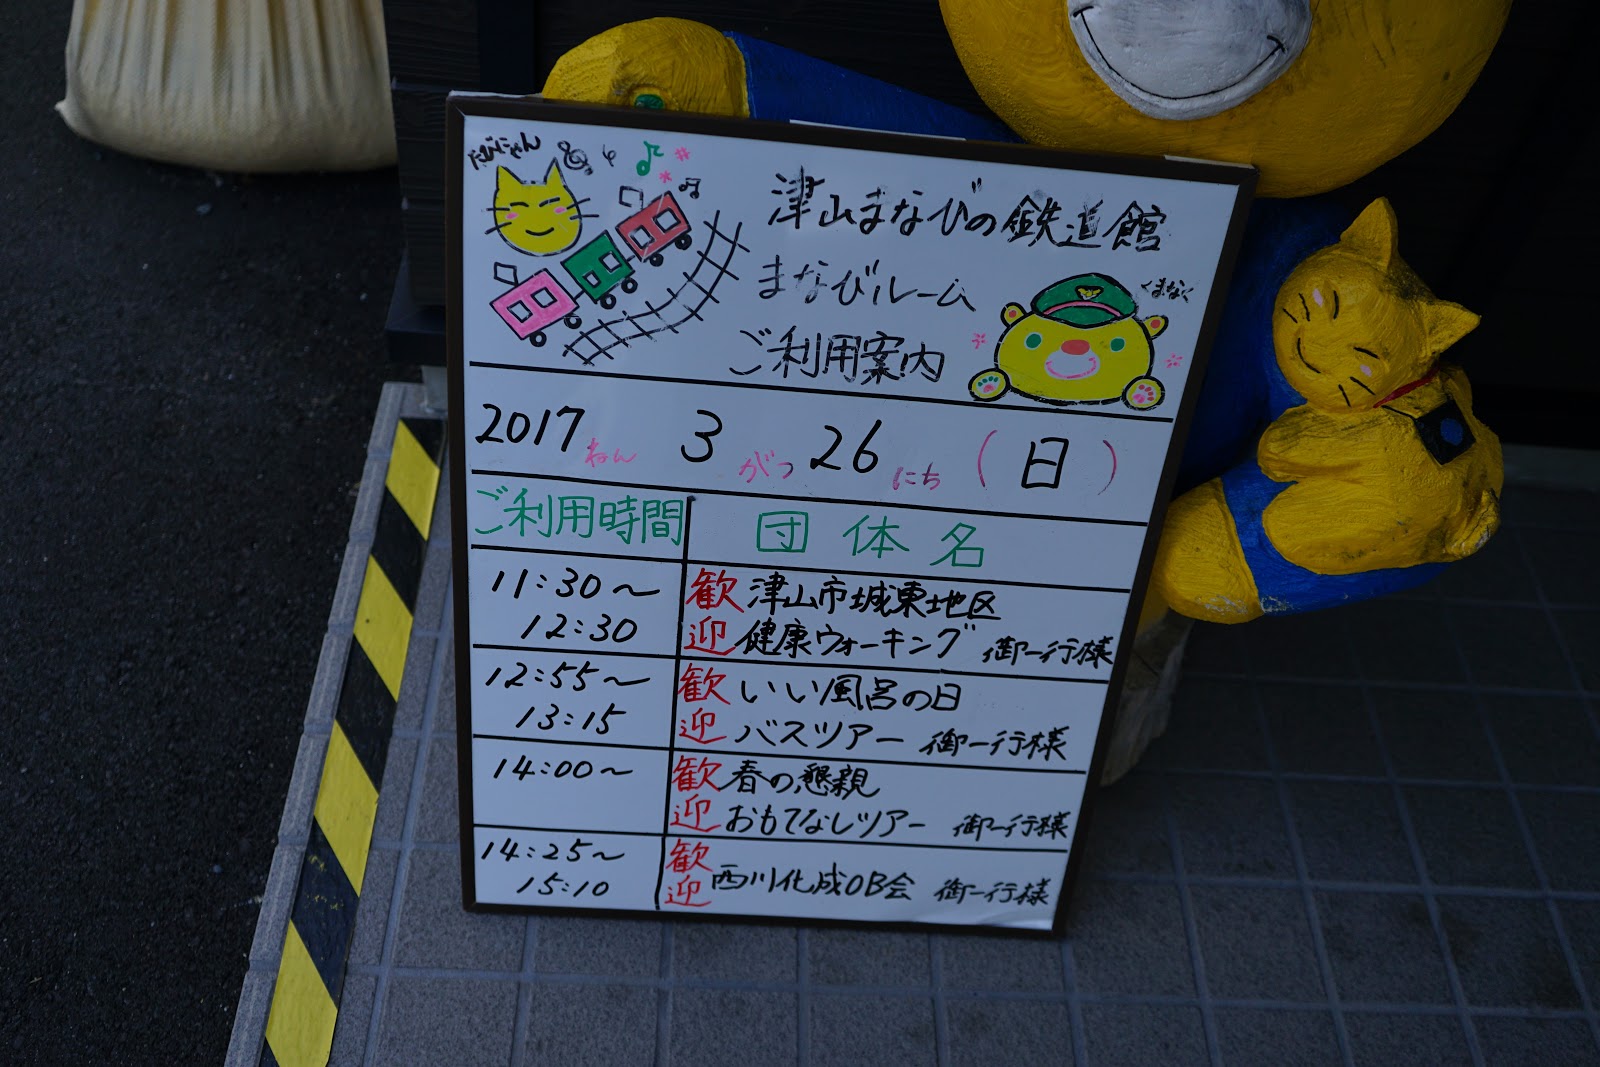 たびにゃん
津山まなびの鉄道館
まなびルーム
くまなく
ご利用案内
2017ねん 3がつ26にち（日）
ご利用時間 団体名
11:30〜12:30 歓迎 津山市城東地区
健康ウォーキング 御一行様
12:55〜13:15 歓迎 いい風呂の日
バスツアー 御一行様
14:00〜 歓迎 春の懇親
おもてなしツアー 御一行様
14:25〜15:10 歓迎 西川化成OB会 御一行様